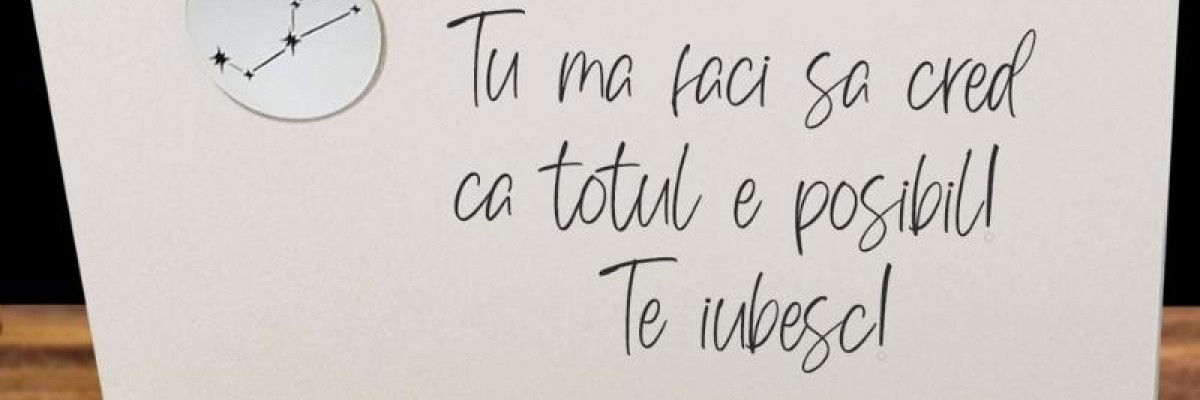 Tu ma faci sa cred
ca totul e posibil!
Te iubesc!